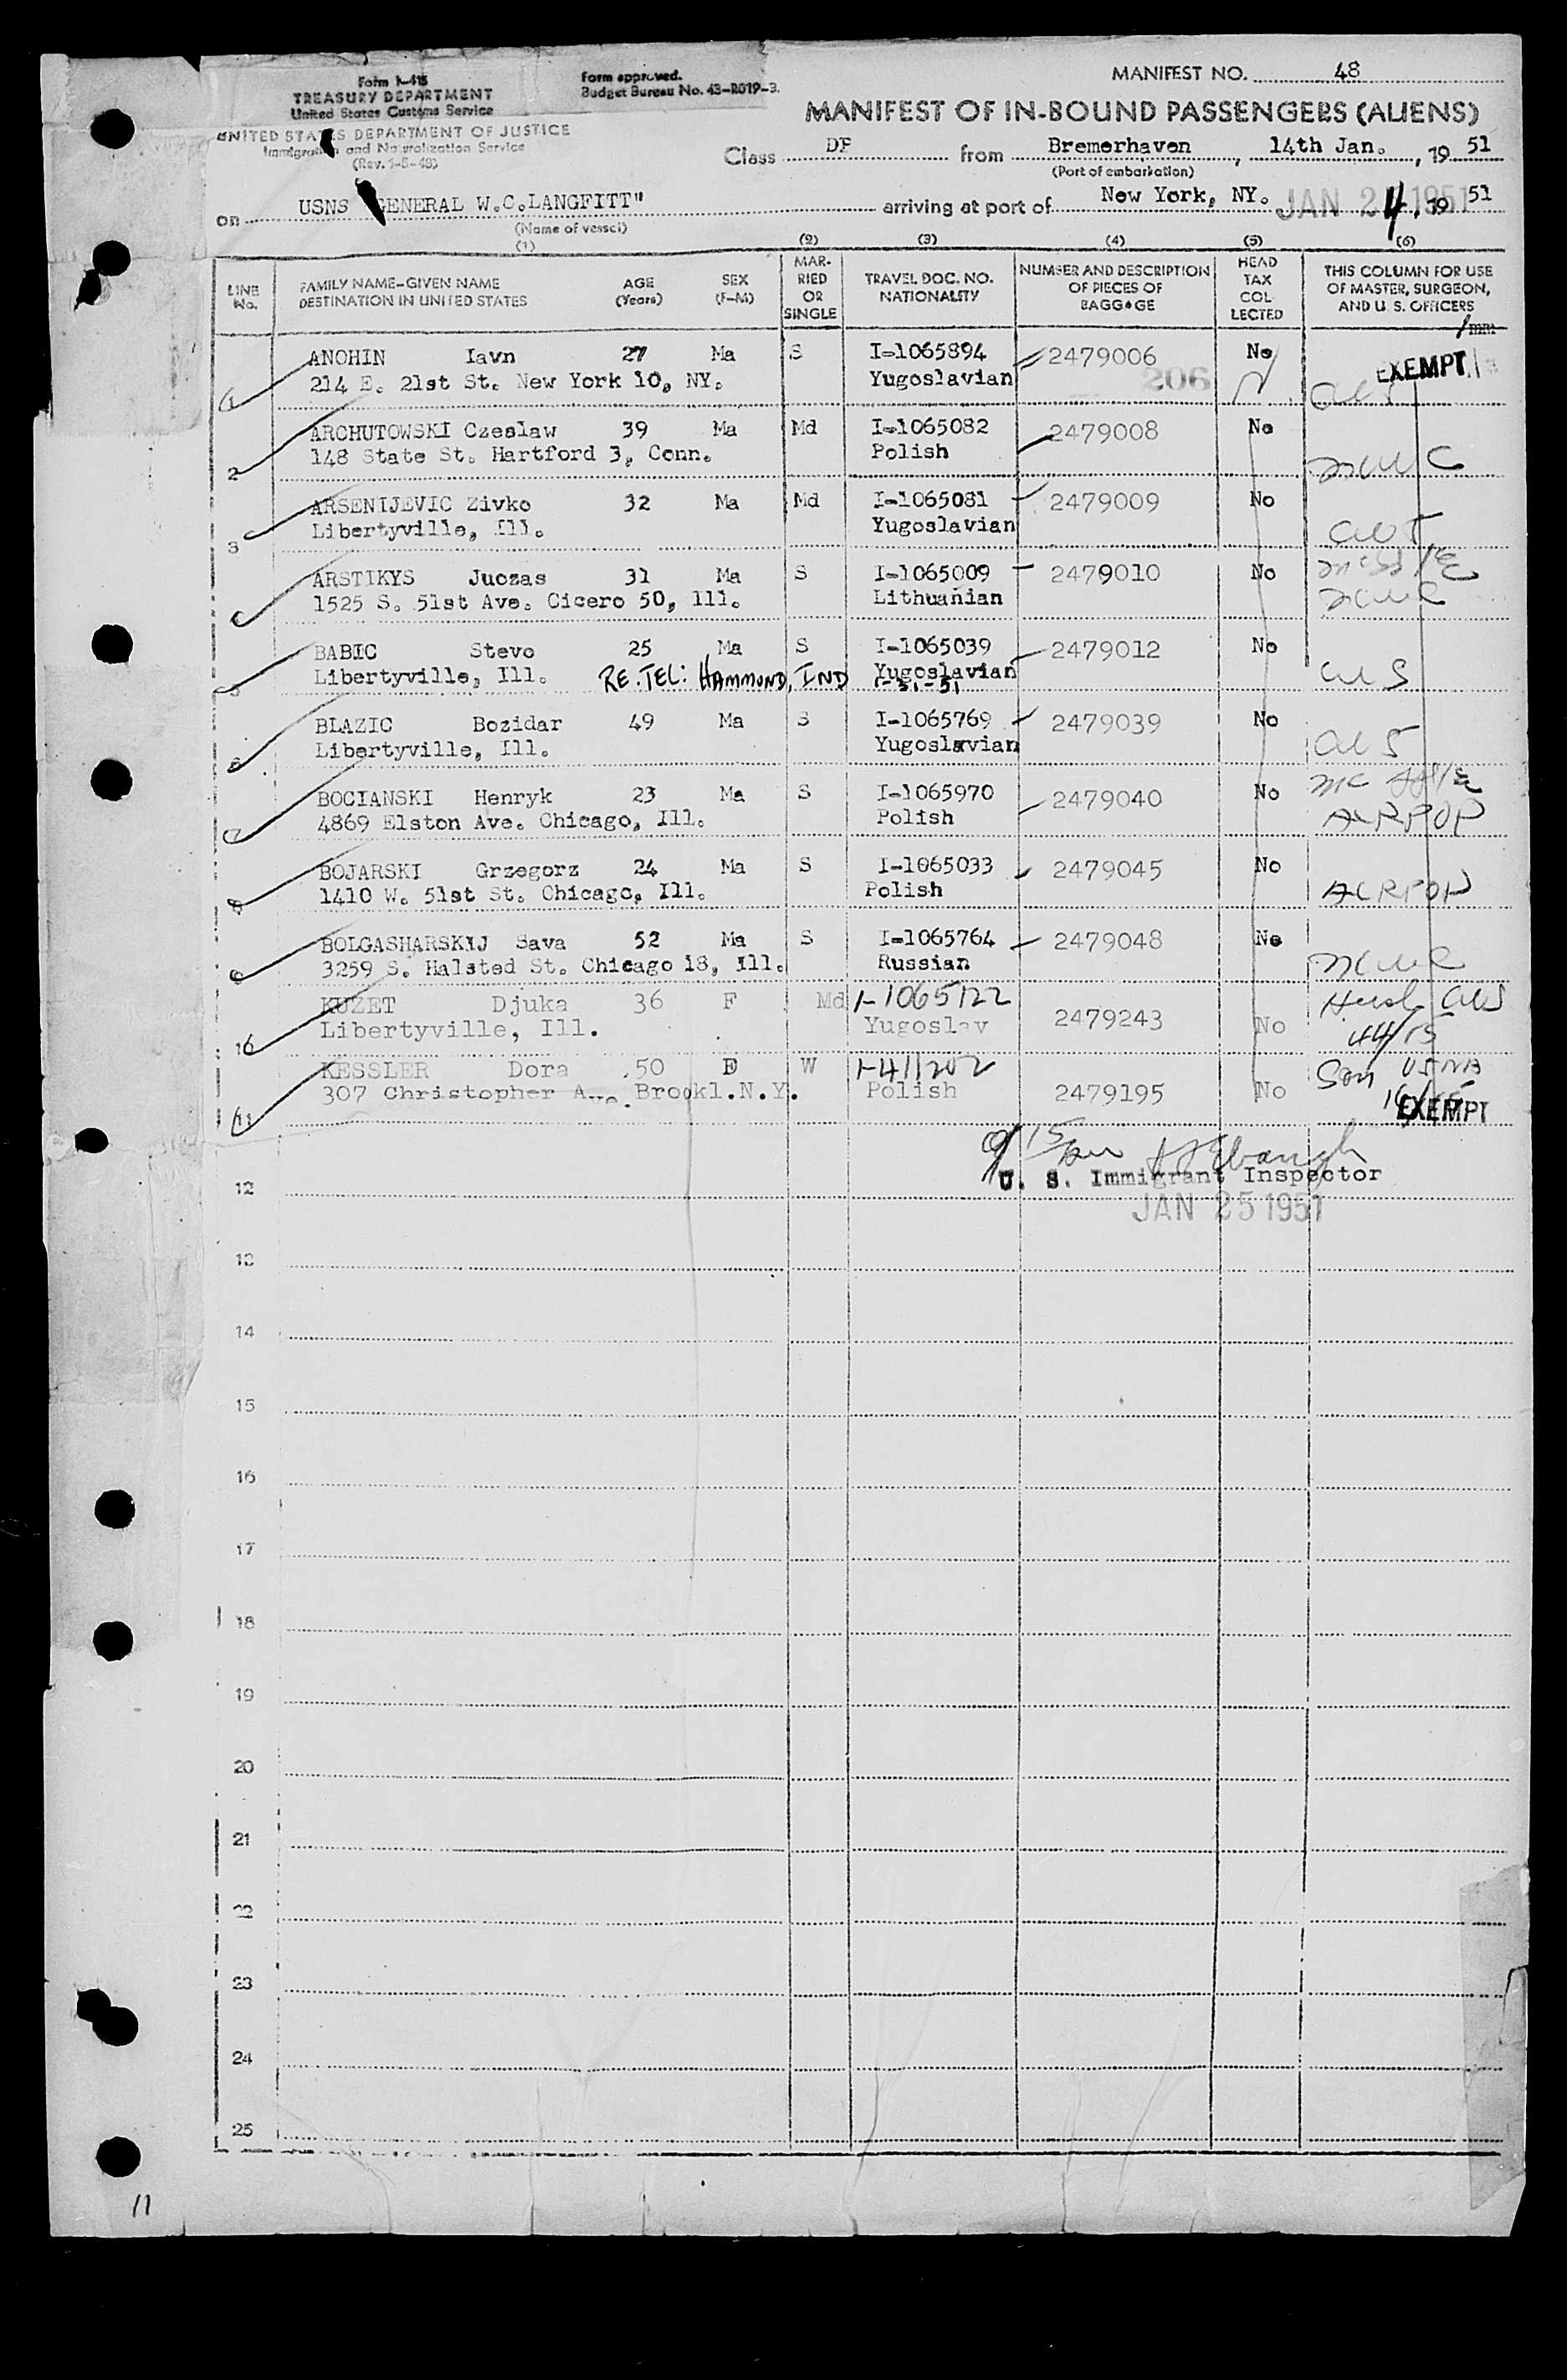 Form I-415
TREASURY DEPARTMENT
United States Customs Service
Form approved.
Budget Bureau No. 43-R019-3.
UNITED STATES DEPARTMENT OF JUSTICE
Immigration and Naturalization Service
(Rev. 1-5-48)
MANIFEST NO. 48
MANIFEST OF IN-BOUND PASSENGERS (ALIENS)
Class DP from Bremerhaven, 14th Jan., 19 51
(Port of embarkation)
on USNS "GENERAL W.C.LANGFITT" arriving at port of New York, NY. JAN 24 1951, 19 51
(Name of vessel)
(1) (2) (3) (4) (5) (6)
LINE No. FAMILY NAME-GIVEN NAME DESTINATION IN UNITED STATES AGE (Years) SEX (F-M) MARRIED OR SINGLE TRAVEL DOC. NO. NATIONALITY NUMBER AND DESCRIPTION OF PIECES OF BAGGAGE HEAD TAX COLLECTED THIS COLUMN FOR USE OF MASTER, SURGEON, AND U. S. OFFICERS
1 ANOHIN Iavn 27 Ma S I-1065894 2479006 No EXEMPT
214 E. 21st St. New York 10, NY. Yugoslavian 206
2 ARCHUTOWSKI Czeslaw 39 Ma Md I-1065082 2479008 No
148 State St. Hartford 3, Conn. Polish
3 ARSENIJEVIC Zivko 32 Ma Md I-1065081 2479009 No
Libertyville, Ill. Yugoslavian
4 ARSTIKYS Juozas 31 Ma S I-1065009 2479010 No
1525 S. 51st Ave. Cicero 50, Ill. Lithuanian
5 BABIC Stevo 25 Ma S I-1065039 2479012 No
Libertyville, Ill. RE.TEL: HAMMOND, IND Yugoslavian
6 BLAZIC Bozidar 49 Ma S I-1065769 2479039 No
Libertyville, Ill. Yugoslavian
7 BOCIANSKI Henryk 23 Ma S I-1065970 2479040 No
4869 Elston Ave. Chicago, Ill. Polish
8 BOJARSKI Grzegorz 24 Ma S I-1065033 2479045 No
1410 W. 51st St. Chicago, Ill. Polish
9 BOLGASHARSKIJ Sava 52 Ma S I-1065764 2479048 No
3259 S. Halsted St. Chicago 18, Ill. Russian
10 KUZET Djuka 36 F Md I-1065122 2479243 No
Libertyville, Ill. Yugoslav
11 KESSLER Dora 50 F W I-411202 2479195 No Son USNA
307 Christopher Ave. Brookl.N.Y. Polish EXEMPT
U. S. Immigrant Inspector
12
JAN 25 1951
13
14
15
16
17
18
19
20
21
22
23
24
25
11